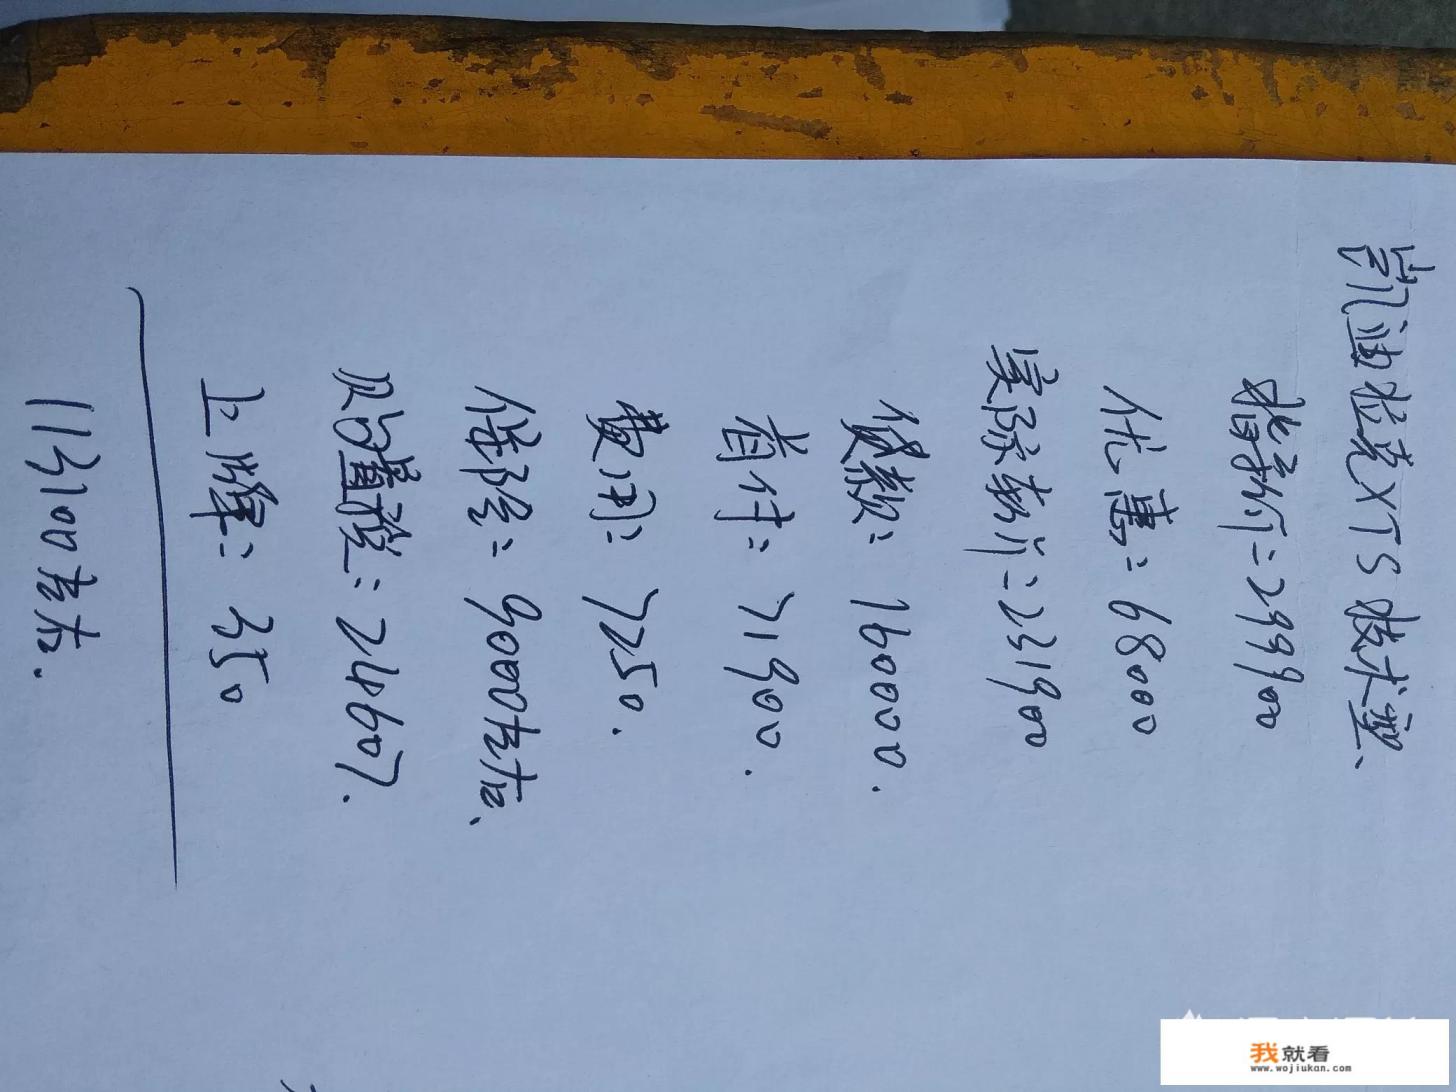 凯迪拉克XTS技术型、
指导价：299900
优惠：68000
实际裸价：231900
贷款：160000.
首付：71900.
费用：7250.
保险：9000左右、
购置税：24607.
上牌：350
113100左右.
我就看
www.wojiukan.com